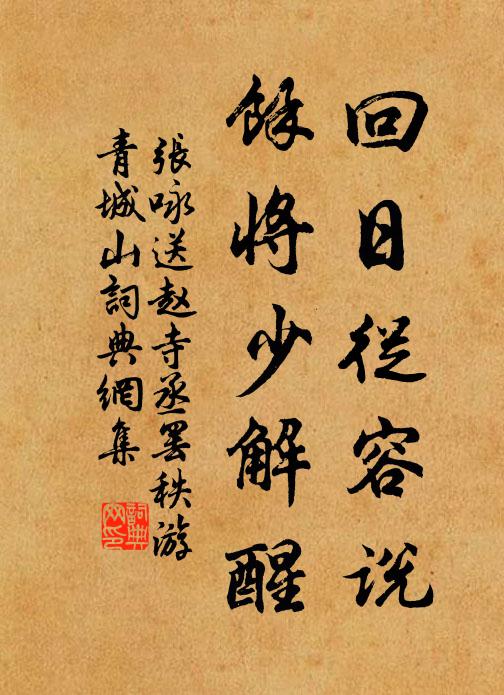 回日從容說
餘將少解醒
張咏送赵寺丞罢秩游
青城山詞典網集
詞典
网印